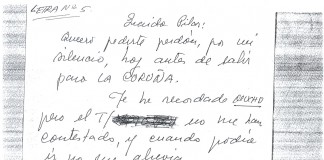 LETRA Nº 5
Querida Pilar:
Quiero pedirte perdón, por mi
silencio, hoy antes de salir
para LA CORUÑA.
Te he recordado MUCHO
pero el T/ no me han
contestado, y cuando podía
ir no me